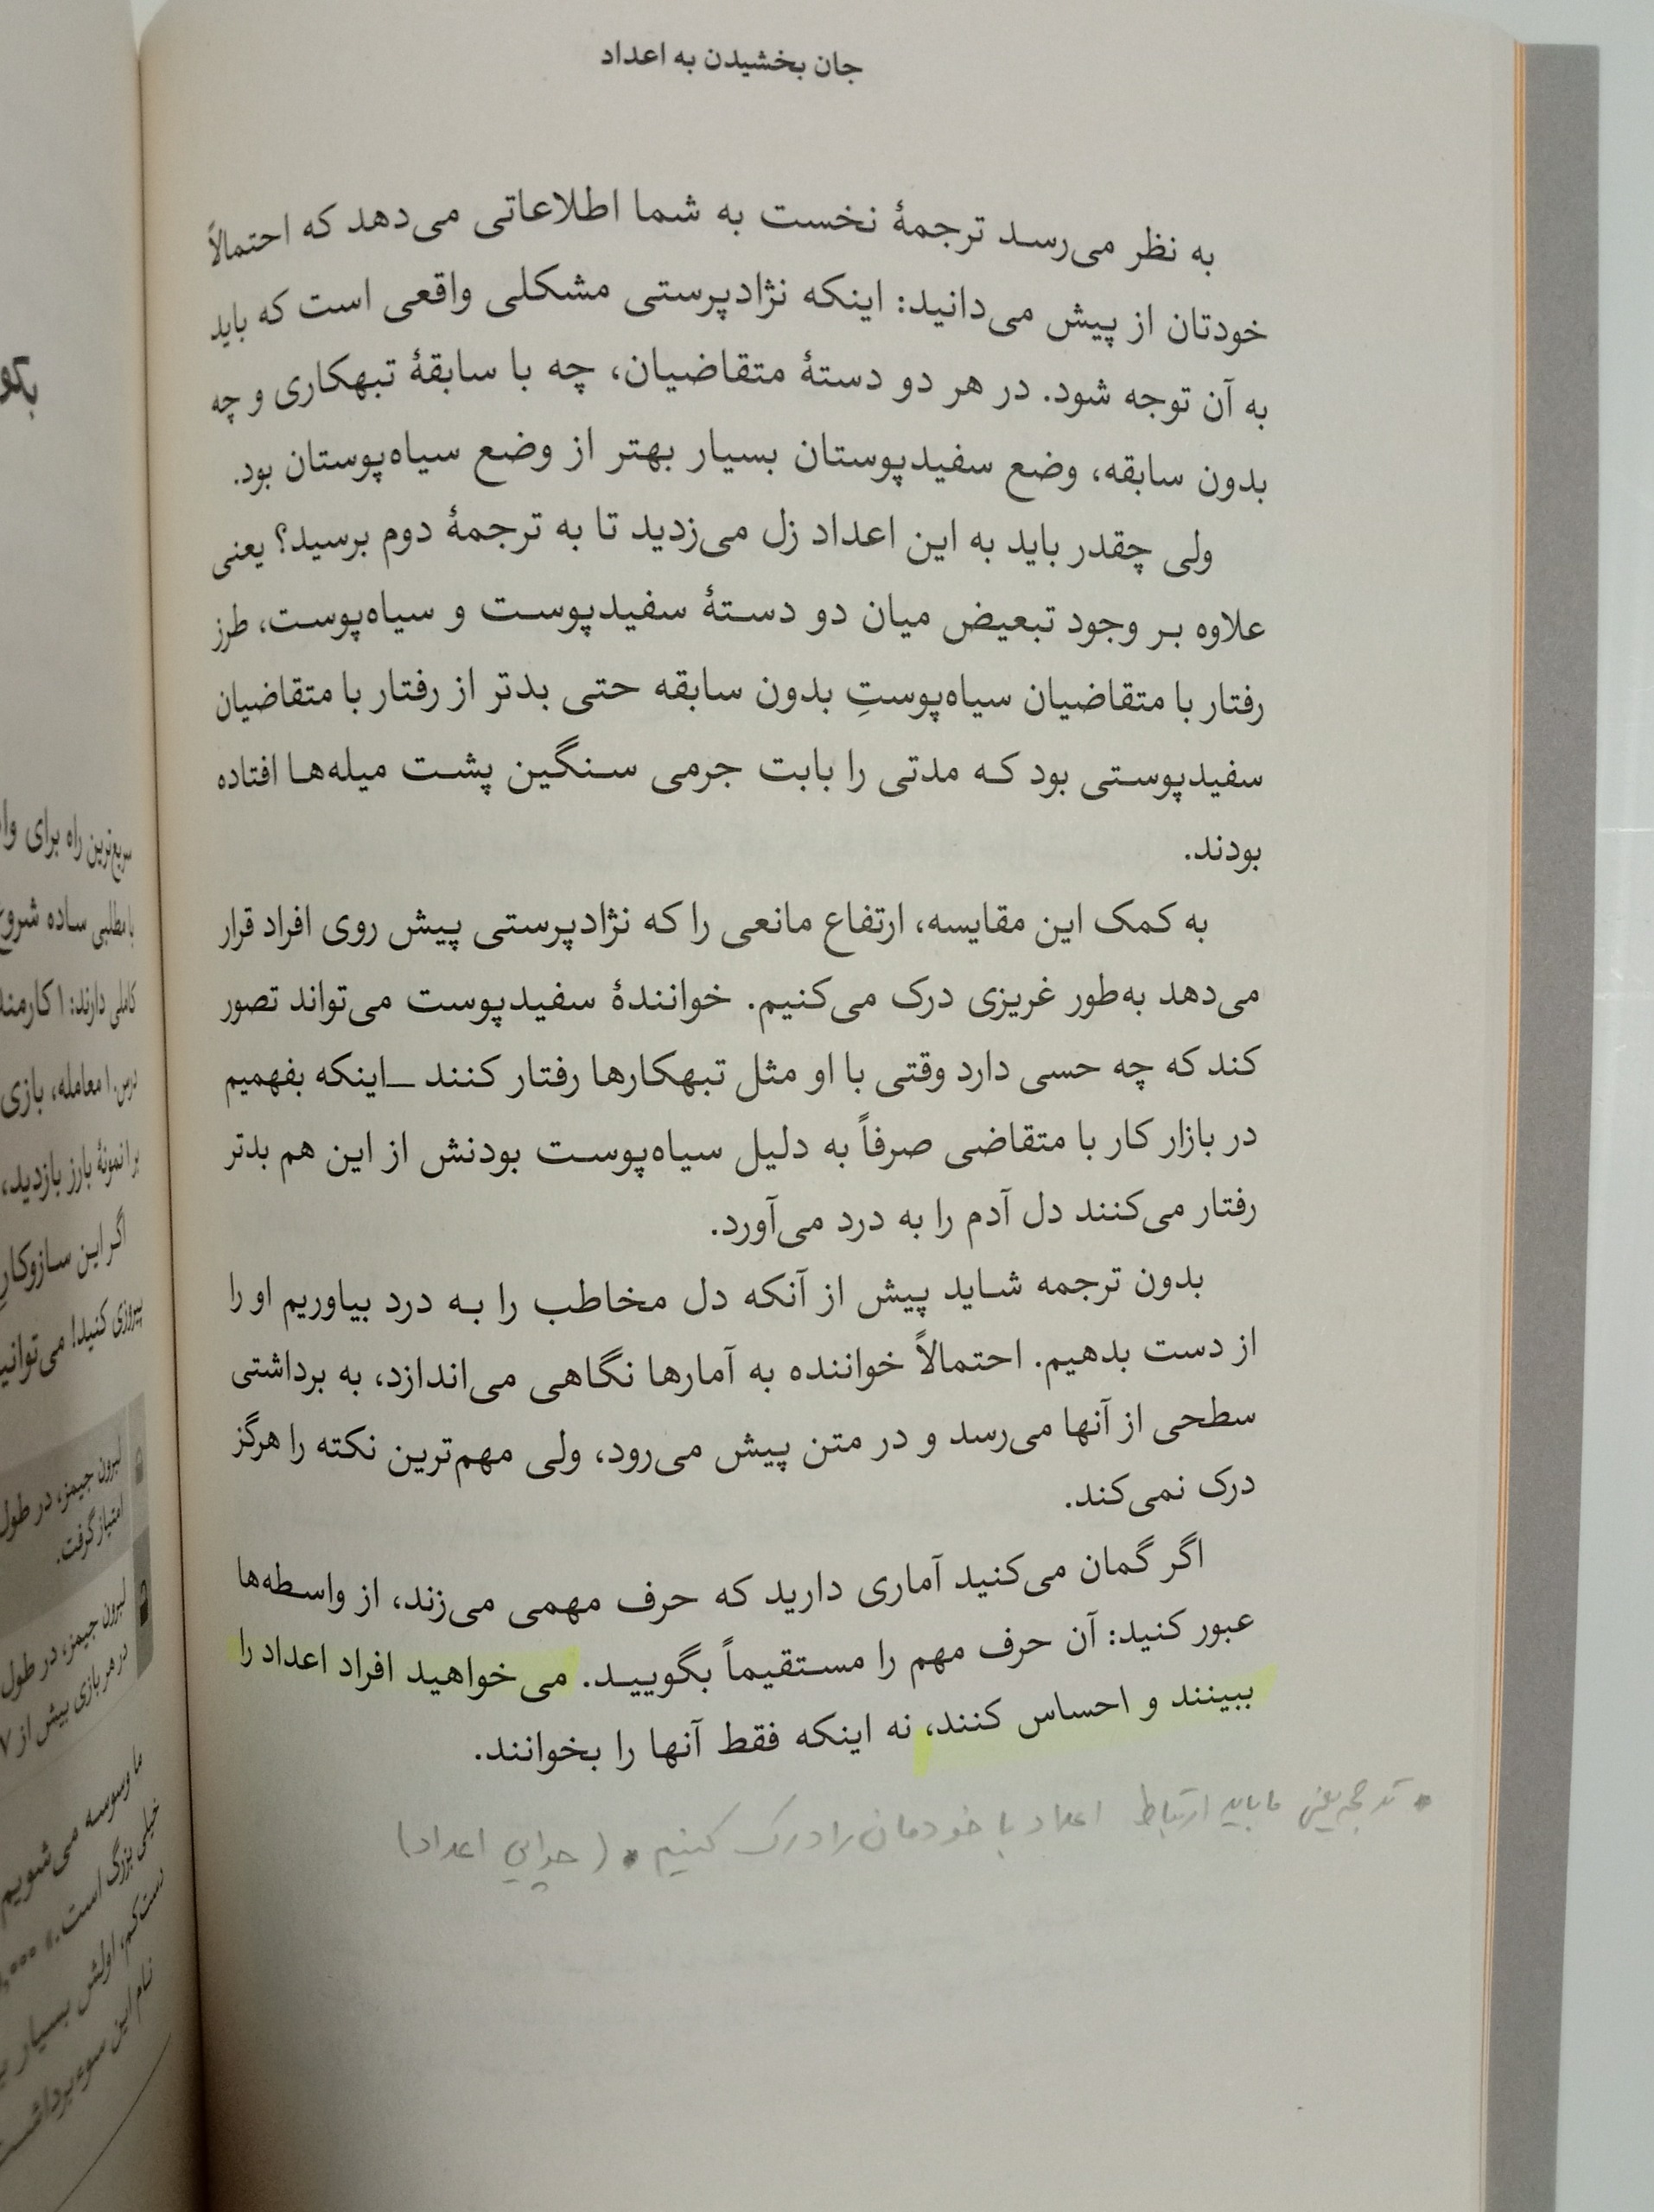 جان بخشیدن به اعداد
به نظر می‌رسد ترجمهٔ نخست به شما اطلاعاتی می‌دهد که احتمالاً
خودتان از پیش می‌دانید: اینکه نژادپرستی مشکلی واقعی است که باید
به آن توجه شود. در هر دو دستهٔ متقاضیان، چه با سابقهٔ تبهکاری و چه
بدون سابقه، وضع سفیدپوستان بسیار بهتر از وضع سیاه‌پوستان بود.
ولی چقدر باید به این اعداد زل می‌زدید تا به ترجمهٔ دوم برسید؟ یعنی
علاوه بر وجود تبعیض میان دو دستهٔ سفیدپوست و سیاه‌پوست، طرز
رفتار با متقاضیان سیاه‌پوستِ بدون سابقه حتی بدتر از رفتار با متقاضیان
سفیدپوستی بود که مدتی را بابت جرمی سنگین پشت میله‌ها افتاده
بودند.
به کمک این مقایسه، ارتفاع مانعی را که نژادپرستی پیش روی افراد قرار
می‌دهد به‌طور غریزی درک می‌کنیم. خوانندهٔ سفیدپوست می‌تواند تصور
کند که چه حسی دارد وقتی با او مثل تبهکارها رفتار کنند ــ اینکه بفهمیم
در بازار کار با متقاضی صرفاً به دلیل سیاه‌پوست بودنش از این هم بدتر
رفتار می‌کنند دل آدم را به درد می‌آورد.
بدون ترجمه شاید پیش از آنکه دل مخاطب را به درد بیاوریم او را
از دست بدهیم. احتمالاً خواننده به آمارها نگاهی می‌اندازد، به برداشتی
سطحی از آنها می‌رسد و در متن پیش می‌رود، ولی مهم‌ترین نکته را هرگز
درک نمی‌کند.
اگر گمان می‌کنید آماری دارید که حرف مهمی می‌زند، از واسطه‌ها
عبور کنید: آن حرف مهم را مستقیماً بگویید. می‌خواهید افراد اعداد را
ببینند و احساس کنند، نه اینکه فقط آنها را بخوانند.
• ترجمه یعنی ما باید ارتباط اعداد با خودمان را درک کنیم. (چرایی اعداد)
سریع‌ترین راه برای
با مطلبی ساده شروع
کاملی دارند: ۱
درس. ۱ معامله، بازی
بر ۱ نمونهٔ بارز بازدید،
اگر این سازوکارِ
پیروزی کنید!
لبرون جیمز، در طول
امتیاز گرفت.
لبرون جیمز، در طول
در هر بازی بیش از ۷
ما وسوسه می‌شویم
خیلی بزرگ است.»
دست‌کم، اولش بسیار
نام این سوءبرداشت